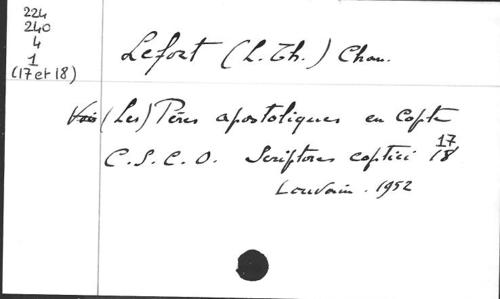 224
240
4
1
(17 et 18)
Lefort (L. Th.) Chan.
Voir (Les) Pères apostoliques en Copte
C.S.C.O. Scriptores coptici 17
18
Louvain. 1952